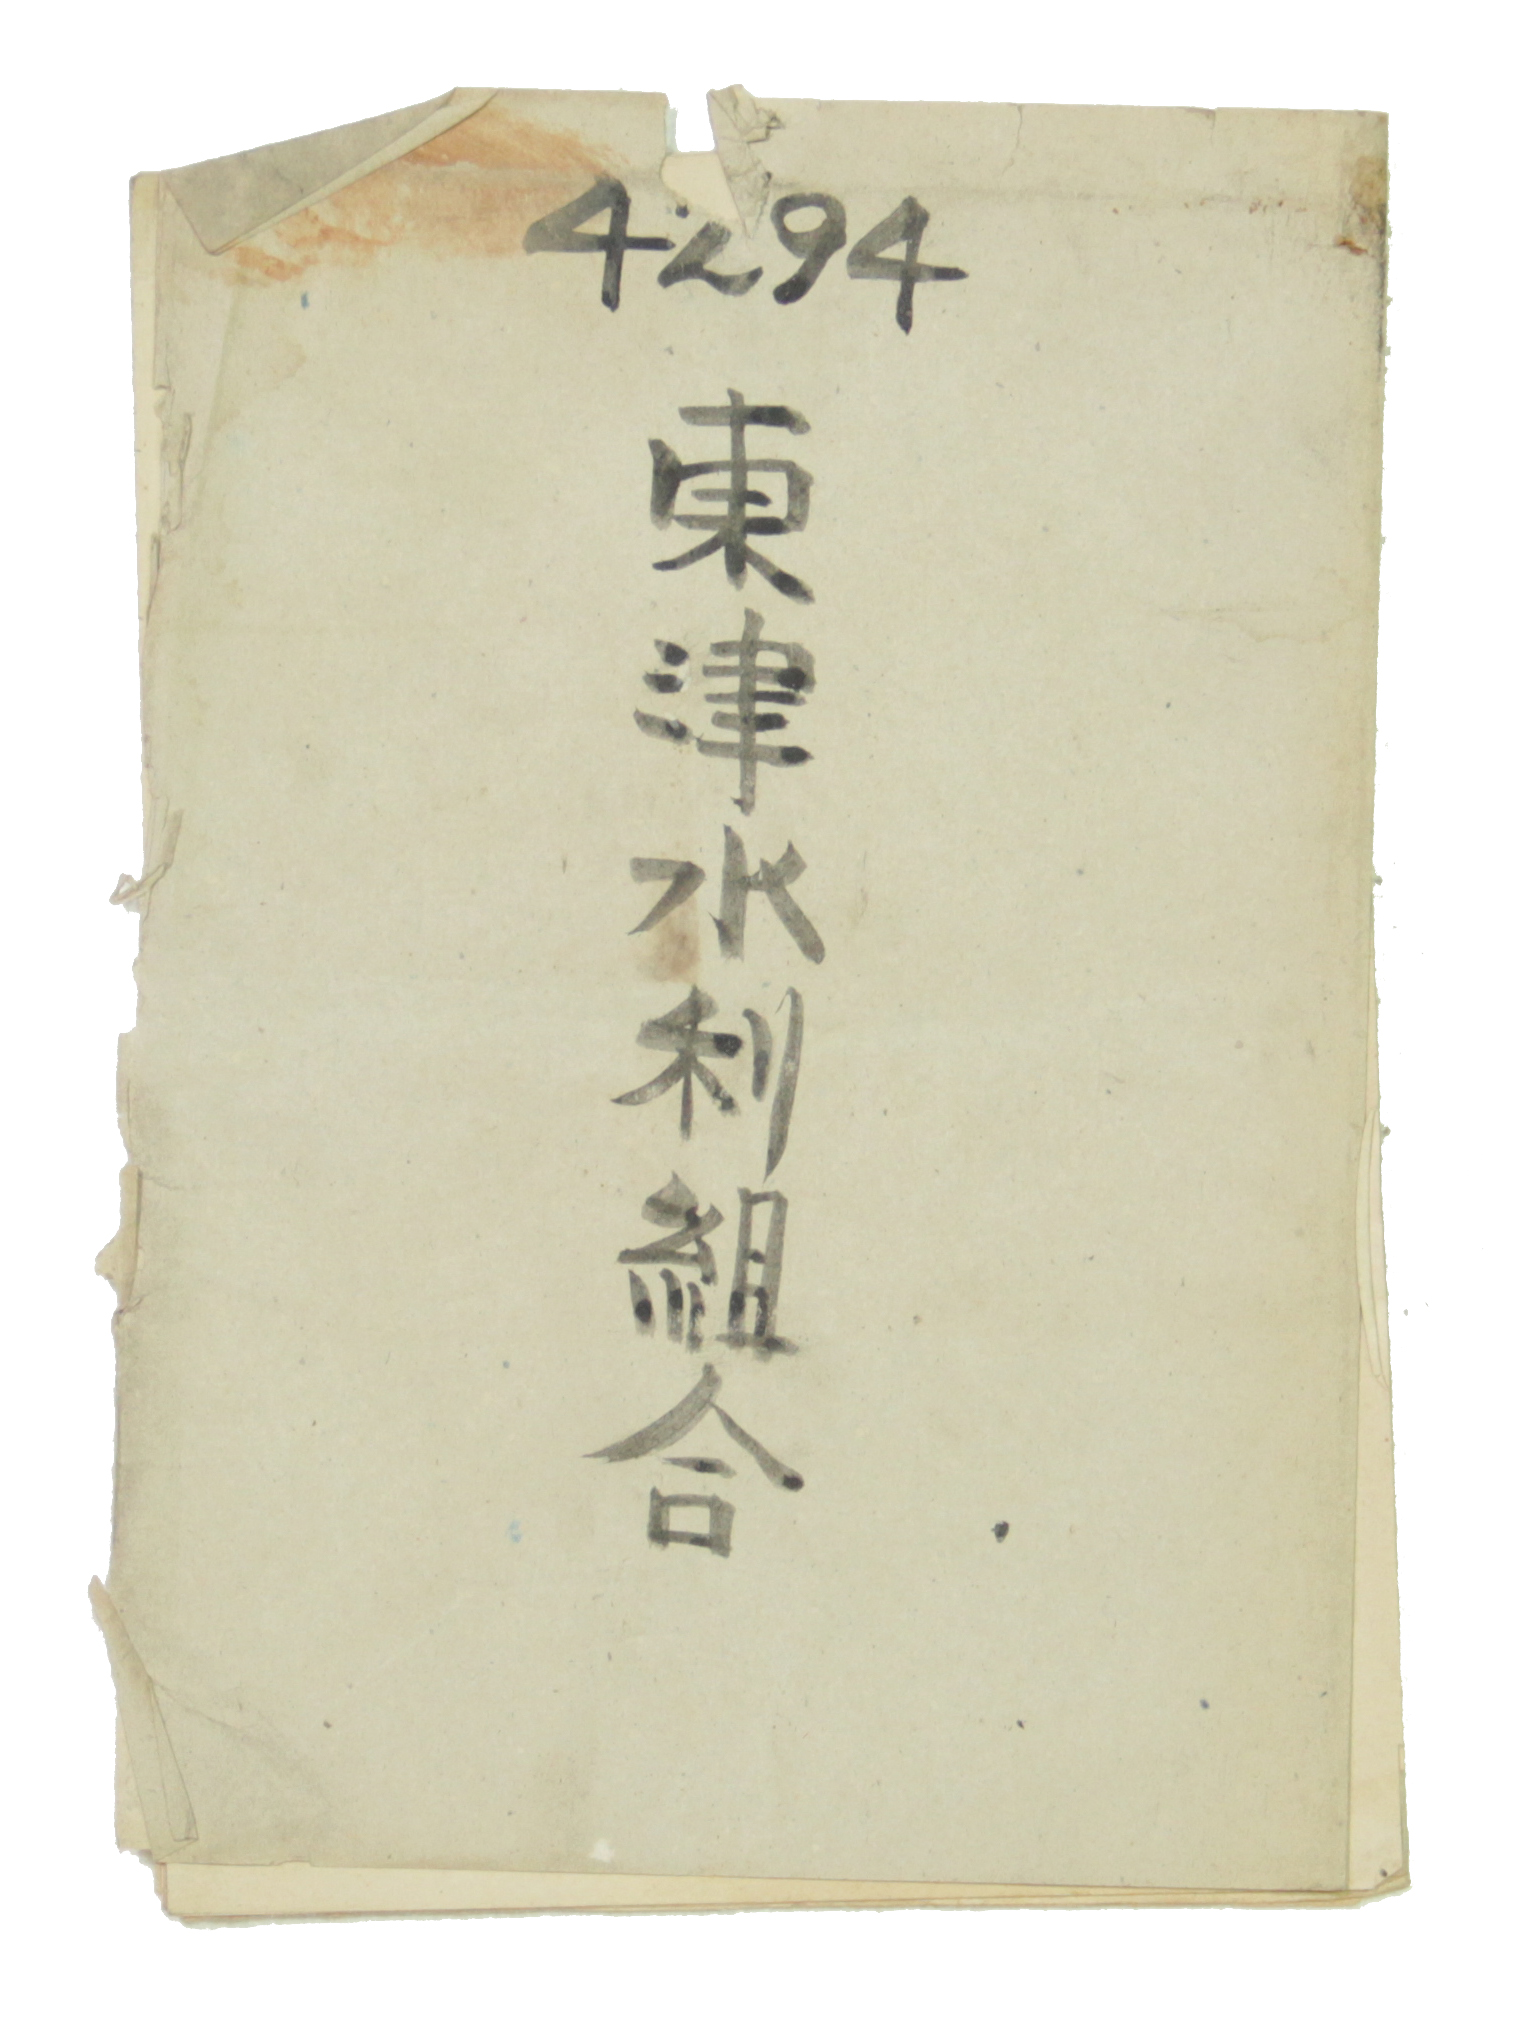 4294
東津水利組合